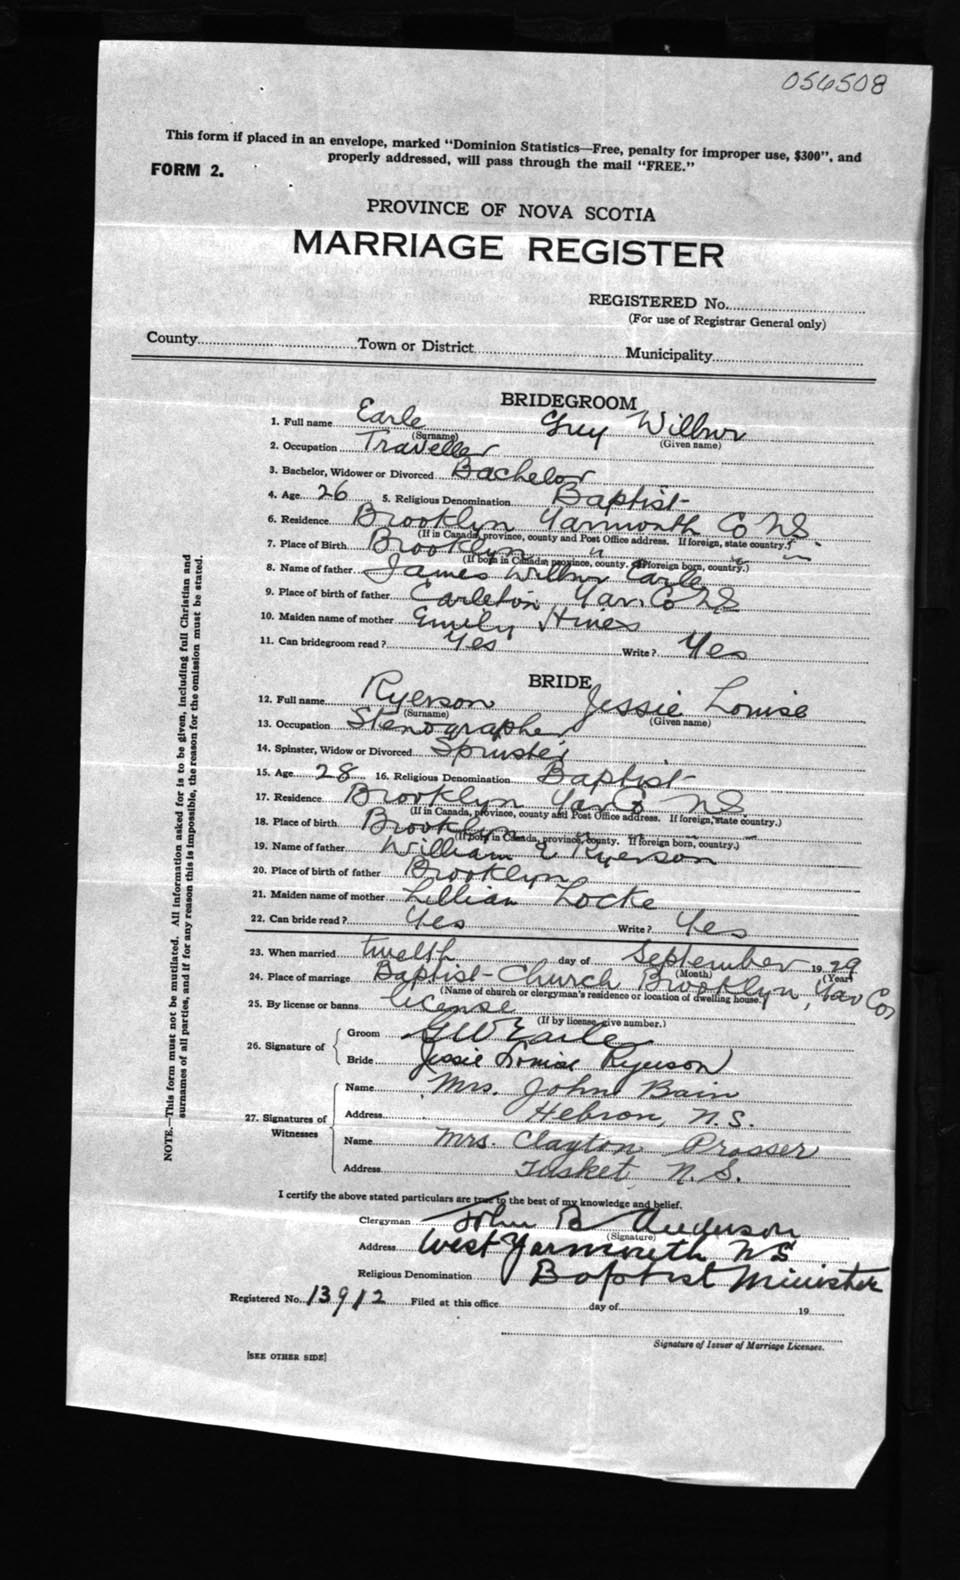 056508
This form if placed in an envelope, marked "Dominion Statistics—Free, penalty for improper use, $300", and
properly addressed, will pass through the mail "FREE."
FORM 2.
PROVINCE OF NOVA SCOTIA
MARRIAGE REGISTER
REGISTERED No.
(For use of Registrar General only)
County Town or District Municipality
BRIDEGROOM
1. Full name Earle Grey Wilbur
(Surname) (Given name)
2. Occupation Traveller
3. Bachelor, Widower or Divorced Bachelor
4. Age 26 5. Religious Denomination Baptist
6. Residence Brooklyn Yarmouth Co NS
(If in Canada, province, county and Post Office address. If foreign, state country.)
7. Place of Birth Brooklyn " " "
(If born in Canada, province, county. If foreign born, country.)
8. Name of father James Wilbur Earle
9. Place of birth of father Carleton Yar. Co NS
10. Maiden name of mother Emily Hines
11. Can bridegroom read? Yes Write? Yes
BRIDE
12. Full name Ryerson Jessie Louise
(Surname) (Given name)
13. Occupation Stenographer
14. Spinster, Widow or Divorced Spinster
15. Age 28 16. Religious Denomination Baptist
17. Residence Brooklyn Yar Co NS
(If in Canada, province, county and Post Office address. If foreign, state country.)
18. Place of birth Brooklyn " " "
(If born in Canada, province, county. If foreign born, country.)
19. Name of father William E Ryerson
20. Place of birth of father Brooklyn
21. Maiden name of mother Lillian Locke
22. Can bride read? Yes Write? Yes
23. When married twelth day of September 1929
(Month) (Year)
24. Place of marriage Baptist Church Brooklyn, Yar Co
(Name of church or clergyman's residence or location of dwelling house.)
25. By license or banns license
(If by license, give number.)
26. Signature of Groom G W Earle
Bride Jessie Louise Ryerson
27. Signatures of Witnesses
Name Mrs. John Bain
Address Hebron, N.S.
Name Mrs. Clayton Prosser
Address Tusket, N.S.
I certify the above stated particulars are true to the best of my knowledge and belief.
Clergyman John B Anderson
(Signature)
Address West Yarmouth NS
Religious Denomination Baptist Minister
Registered No. 13912 Filed at this office day of 19
Signature of Issuer of Marriage Licenses.
[SEE OTHER SIDE]
NOTE.—This form must not be mutilated. All information asked for is to be given, including full Christian and
surnames of all parties, and if for any reason this is impossible, the reason for the omission must be stated.